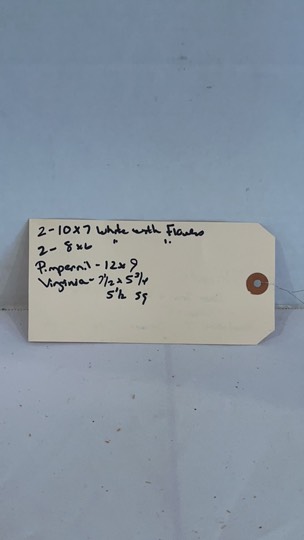 2-10x7 White with Flowers
2- 8x6 " "
Pimpernil - 12x9
Virginia - 7 1/2 x 5 3/4
5 1/2 sq